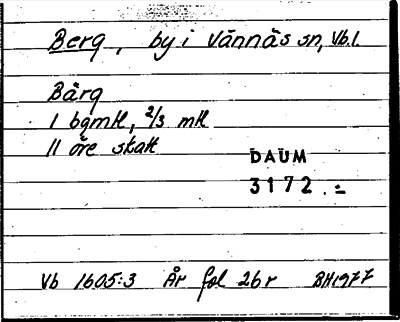 Berg, by i Vännäs sn, Vb.l.
Bärg
1 bgmtl, 2/3 mtl
11 öre skatt
DAUM
3172.-
Vb 1605:3 År fol 26r BH1977